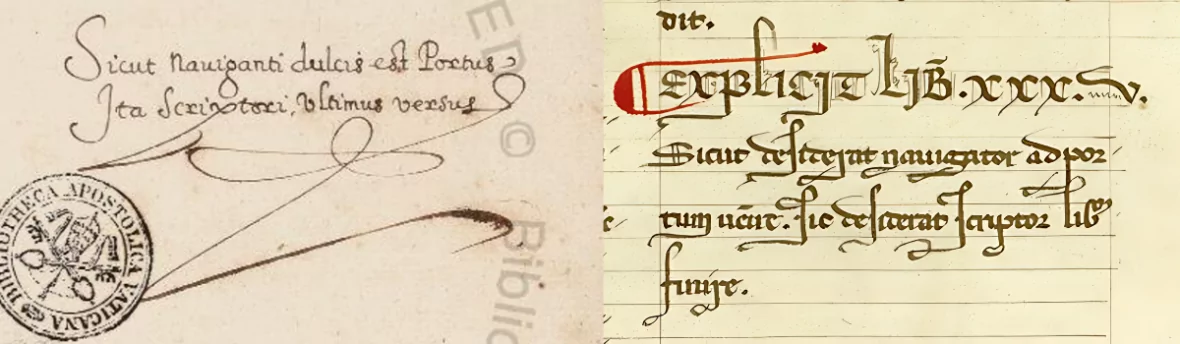 Sicut nauiganti dulcis est Portus
Ita Scriptori, Vltimus versus
BIBLIOTHECA APOSTOLICA VATICANA
©
Biblic
dit.
EXPLICIT LIB. XXX.
Sicut desiderat nauigator ad por
tum uenire. sic desiderat scriptor
finire.